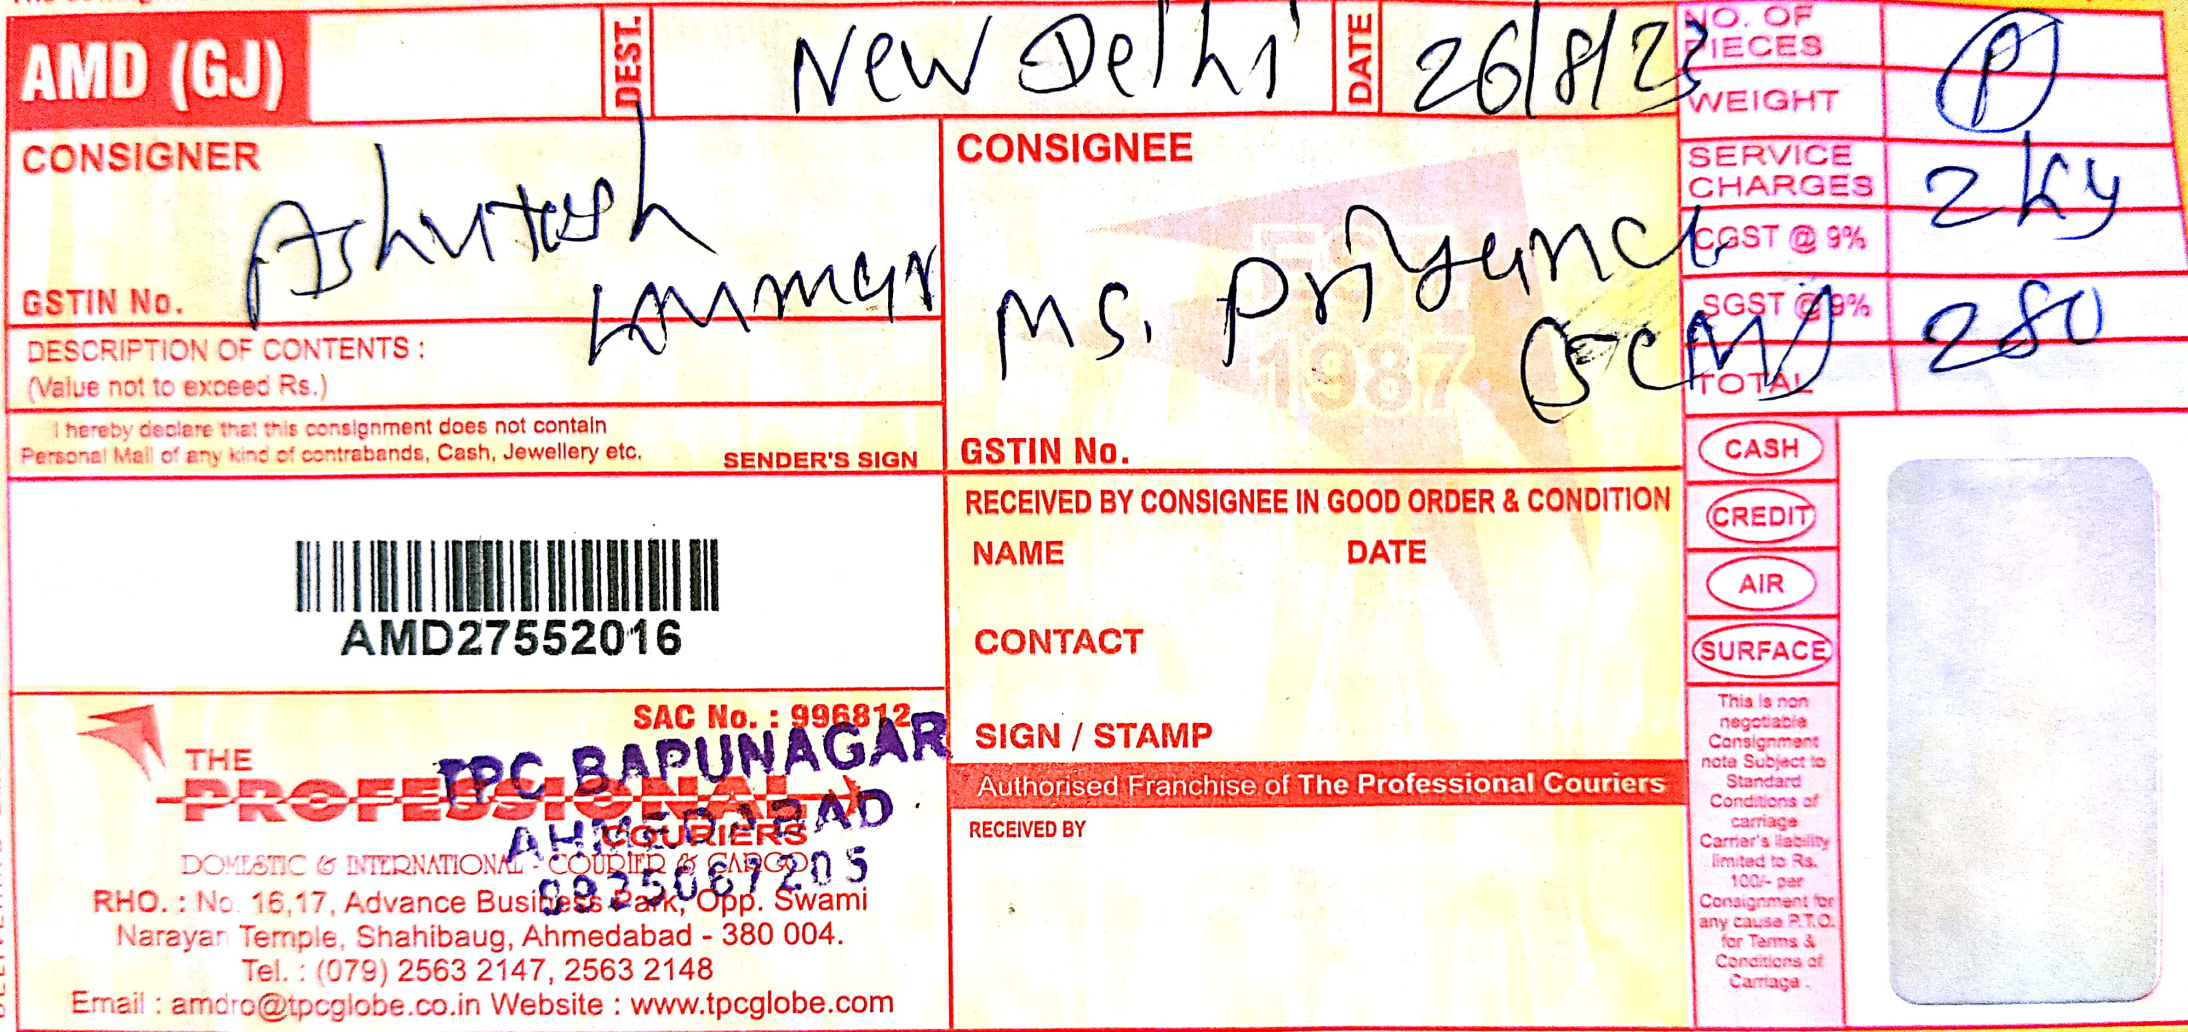 AMD (GJ)
DEST.
New Delhi
DATE
26/8/23
NO. OF PIECES
P
WEIGHT
SERVICE CHARGES
2 kg
CGST @ 9%
SGST @ 9%
280
TOTAL
CONSIGNER
Ashutosh
kumar
GSTIN No.
DESCRIPTION OF CONTENTS :
(Value not to exceed Rs.)
I hereby declare that this consignment does not contain
Personal Mail of any kind of contrabands, Cash, Jewellery etc.
SENDER'S SIGN
CONSIGNEE
EST
1987
Ms. Priyanca
GSTIN No.
AMD27552016
RECEIVED BY CONSIGNEE IN GOOD ORDER & CONDITION
NAME
DATE
CONTACT
SIGN / STAMP
Authorised Franchise of The Professional Couriers
RECEIVED BY
CASH
CREDIT
AIR
SURFACE
This is non
negotiable
Consignment
note Subject to
Standard
Conditions of
carriage
Carrier's liability
limited to Rs.
100/- per
Consignment for
any cause P.T.O.
for Terms &
Conditions of
Carriage .
SAC No. : 996812
TPC BAPUNAGAR
AHMEDABAD
9925067205
THE
PROFESSIONAL
COURIERS
DOMESTIC & INTERNATIONAL - COURIER & CARGO
RHO. : No. 16,17, Advance Business Park, Opp. Swami
Narayan Temple, Shahibaug, Ahmedabad - 380 004.
Tel. : (079) 2563 2147, 2563 2148
Email : amdro@tpcglobe.co.in Website : www.tpcglobe.com